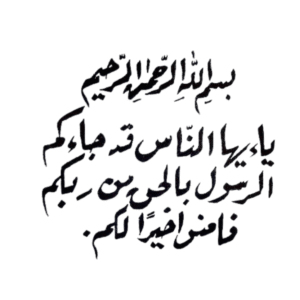 بسم الله الرّحمٰن الرّحيم
ياءيها النّاس قد جاءكم
الرسول بالحق من ربكم
فامنوا خيرًا لكم.